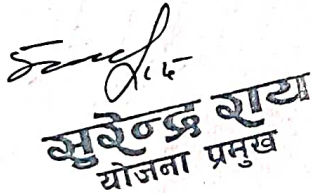 सुरेन्द्र राया
योजना प्रमुख